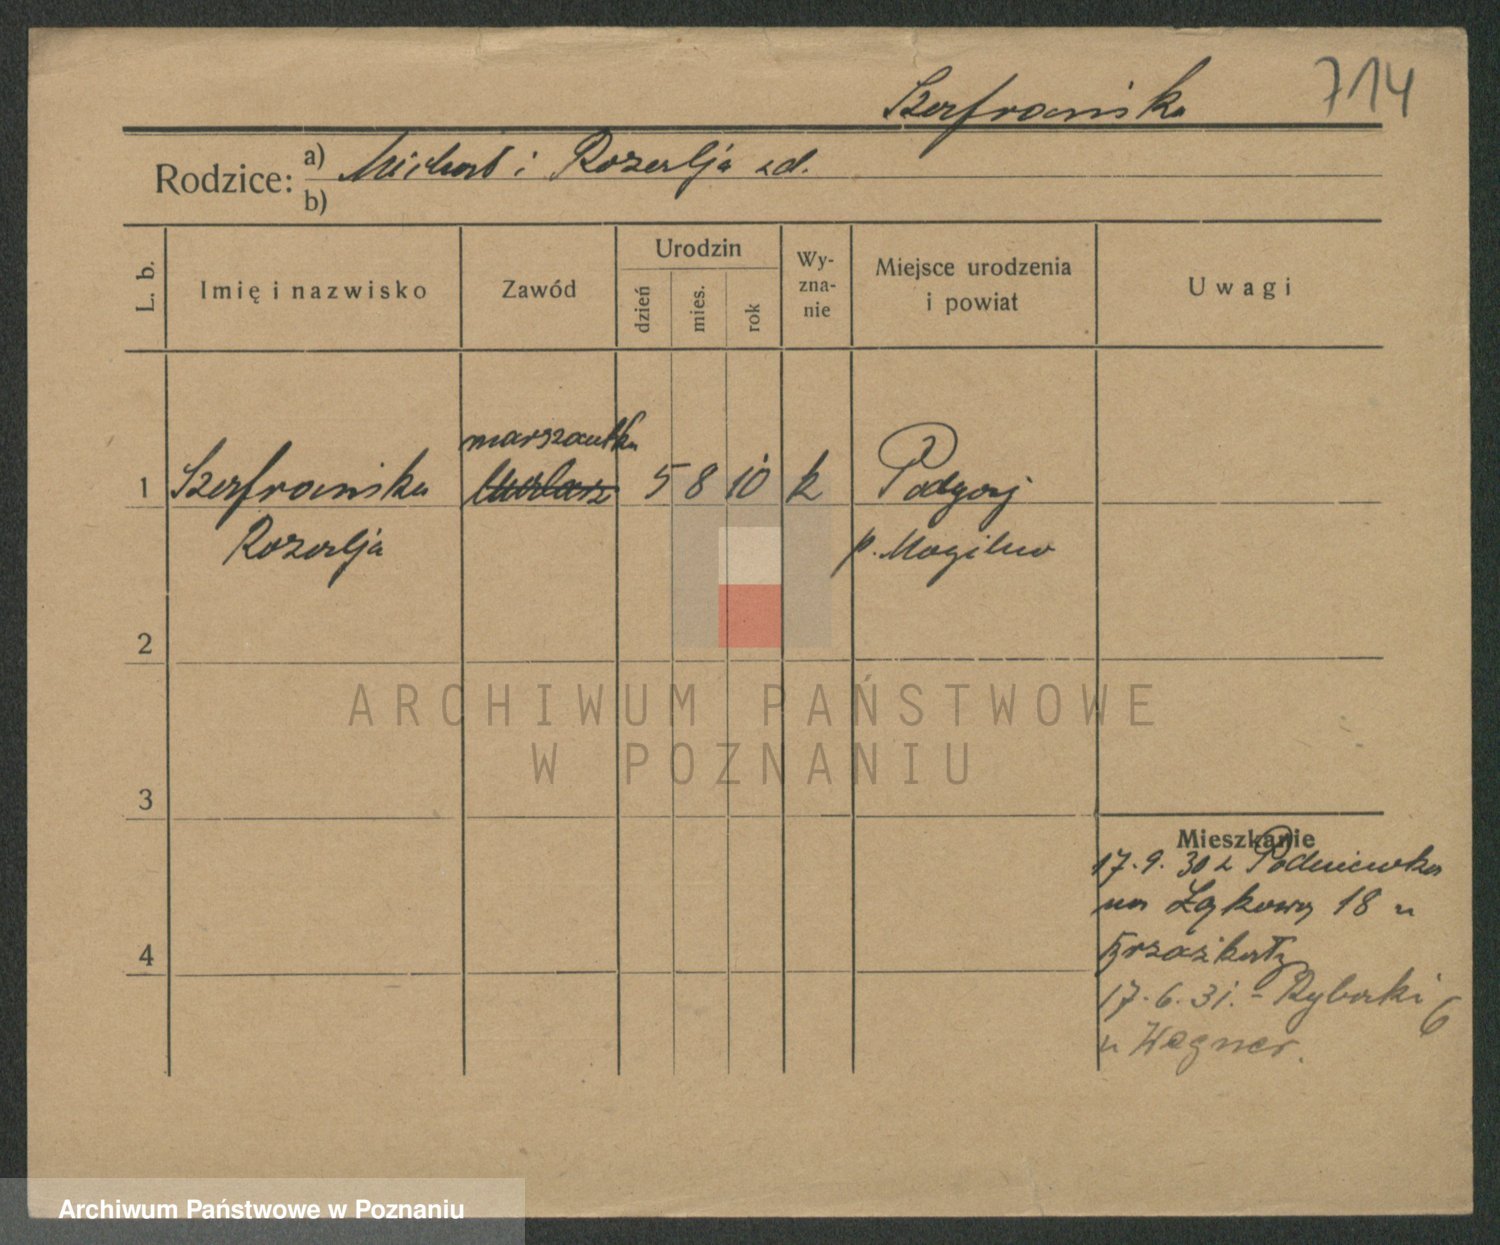 714
Szafrańska
Rodzice: a) Michał i Rozalja zd.
b)
L. b. Imię i nazwisko Zawód Urodzin dzień mies. rok Wy-zna-nie Miejsce urodzenia i powiat Uwagi
marszantka
1 Szafrańska 5 8 10 k Podgaj
Rozalja p. Mogilno
2
ARCHIWUM PAŃSTWOWE
W POZNANIU
3
Mieszkanie
17.9.30 z
na Łąkową 18 u
4
17.6.31.- Rybaki 6
u Wagner.
Archiwum Państwowe w Poznaniu